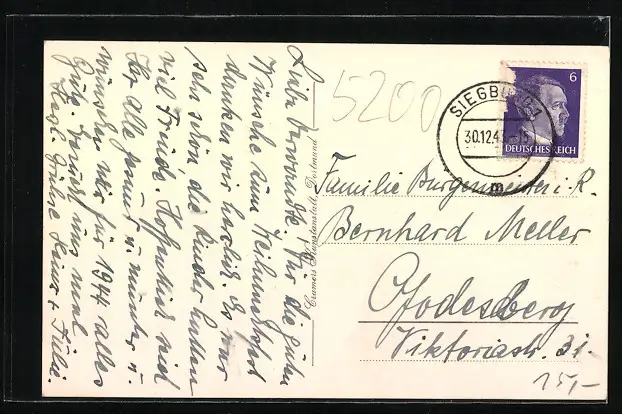 Liebe Verwandte. Für die guten
Wünsche zum Weihnachtsfest
danken wir herzlich. Es war
sehr schön, die Kinder hatten
viel Freude. Hoffentlich seid
Ihr alle gesund u. munter u.
wünschen wir für 1944 alles
Gute. uns mal.
Herzl. Grüße Heinz + Julie.
Cramers Kunstanstalt, Dortmund
5200
SIEGBURG 1
30.12.43
m
6
DEUTSCHES REICH
Familie Burgermeister i. R.
Bernhard Meller
Godesberg
Viktoriastr. 31
15,-